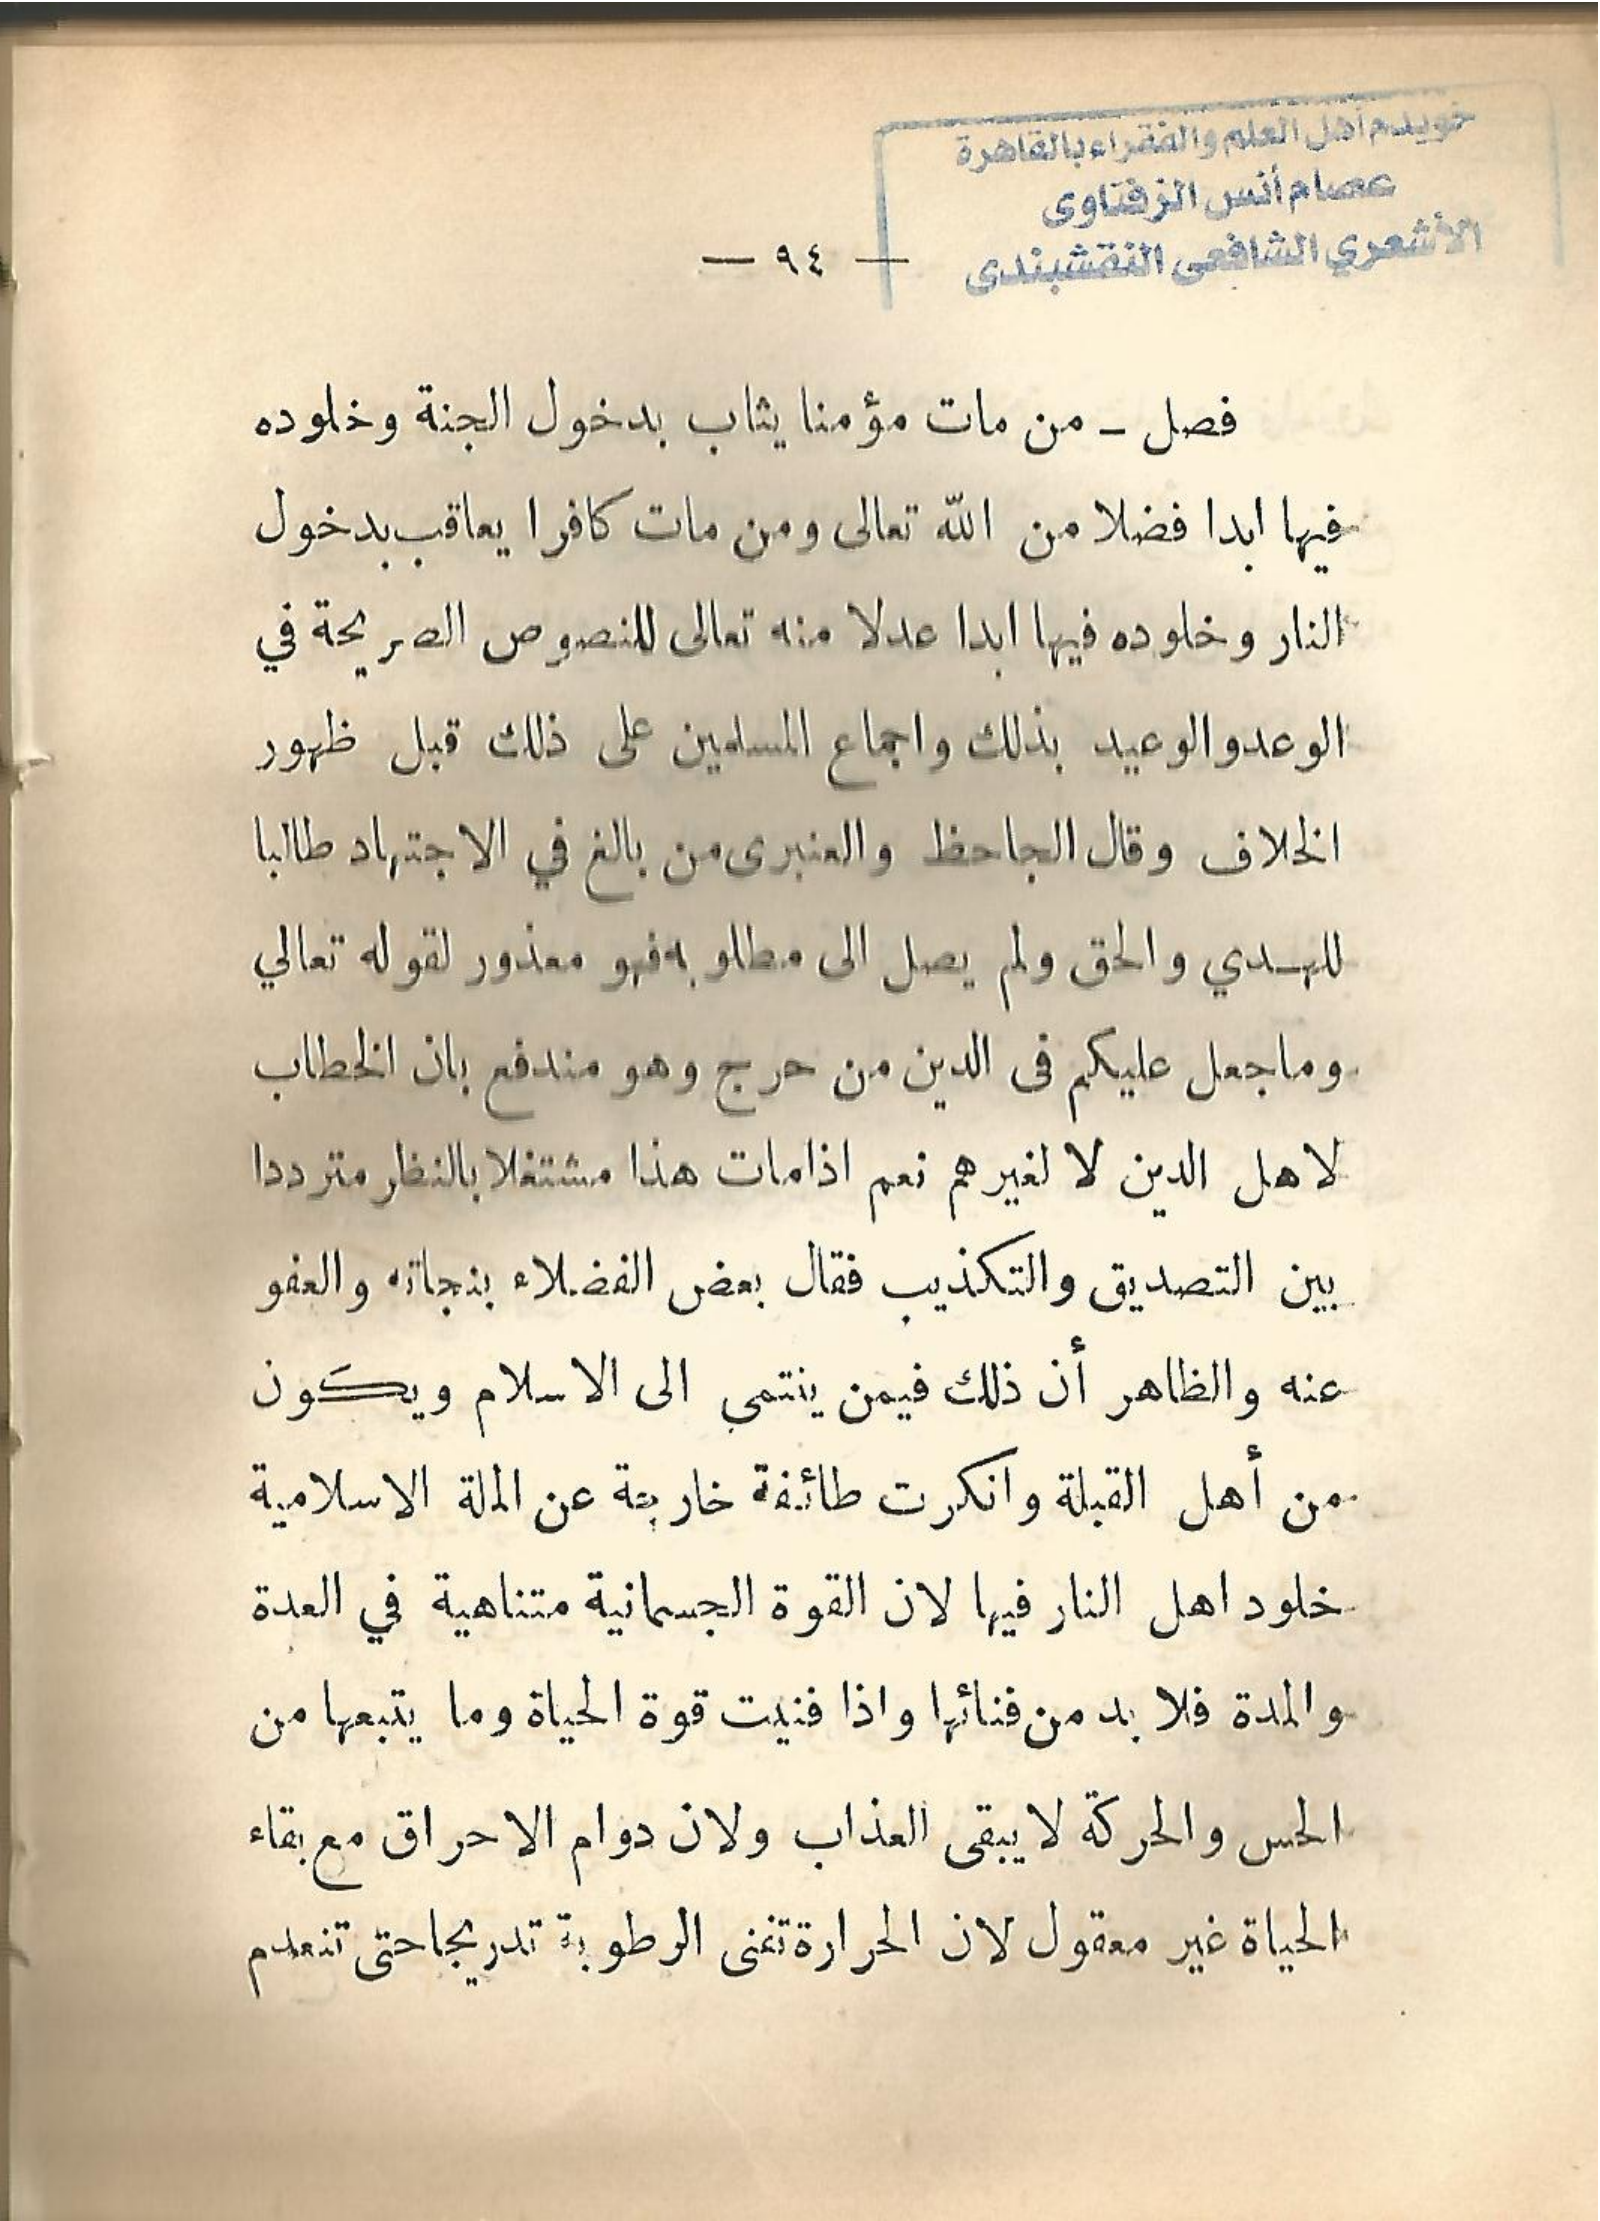 خويدم أهل العلم والفقراء بالقاهرة
عصام أنس الزفتاوى
الأشعري الشافعى النقشبندى
— ٩٤ —
فصل ـ من مات مؤمنا يثاب بدخول الجنة وخلوده
فيها ابدا فضلا من الله تعالى ومن مات كافرا يعاقب بدخول
النار وخلوده فيها ابدا عدلا منه تعالى للنصوص الصريحة في
الوعد والوعيد بذلك واجماع المسلمين على ذلك قبل ظهور
الخلاف وقال الجاحظ والعنبرى من بالغ في الاجتهاد طالبا
للهـدي والحق ولم يصل الى مطلوبه فهو معذور لقوله تعالي
وما جعل عليكم فى الدين من حرج وهو مندفع بان الخطاب
لاهل الدين لا لغيرهم نعم اذا مات هذا مشتغلا بالنظر مترددا
بين التصديق والتكذيب فقال بعض الفضلاء بنجاته والعفو
عنه والظاهر أن ذلك فيمن ينتمي الى الاسلام ويكون
من أهل القبلة وانكرت طائفة خارجة عن الملة الاسلامية
خلود اهل النار فيها لان القوة الجسمانية متناهية في العدة
والمدة فلا بد من فنائها واذا فنيت قوة الحياة وما يتبعها من
الحس والحركة لا يبقى العذاب ولان دوام الاحراق مع بقاء
الحياة غير معقول لان الحرارة تفنى الرطوبة تدريجا حتى تنعدم